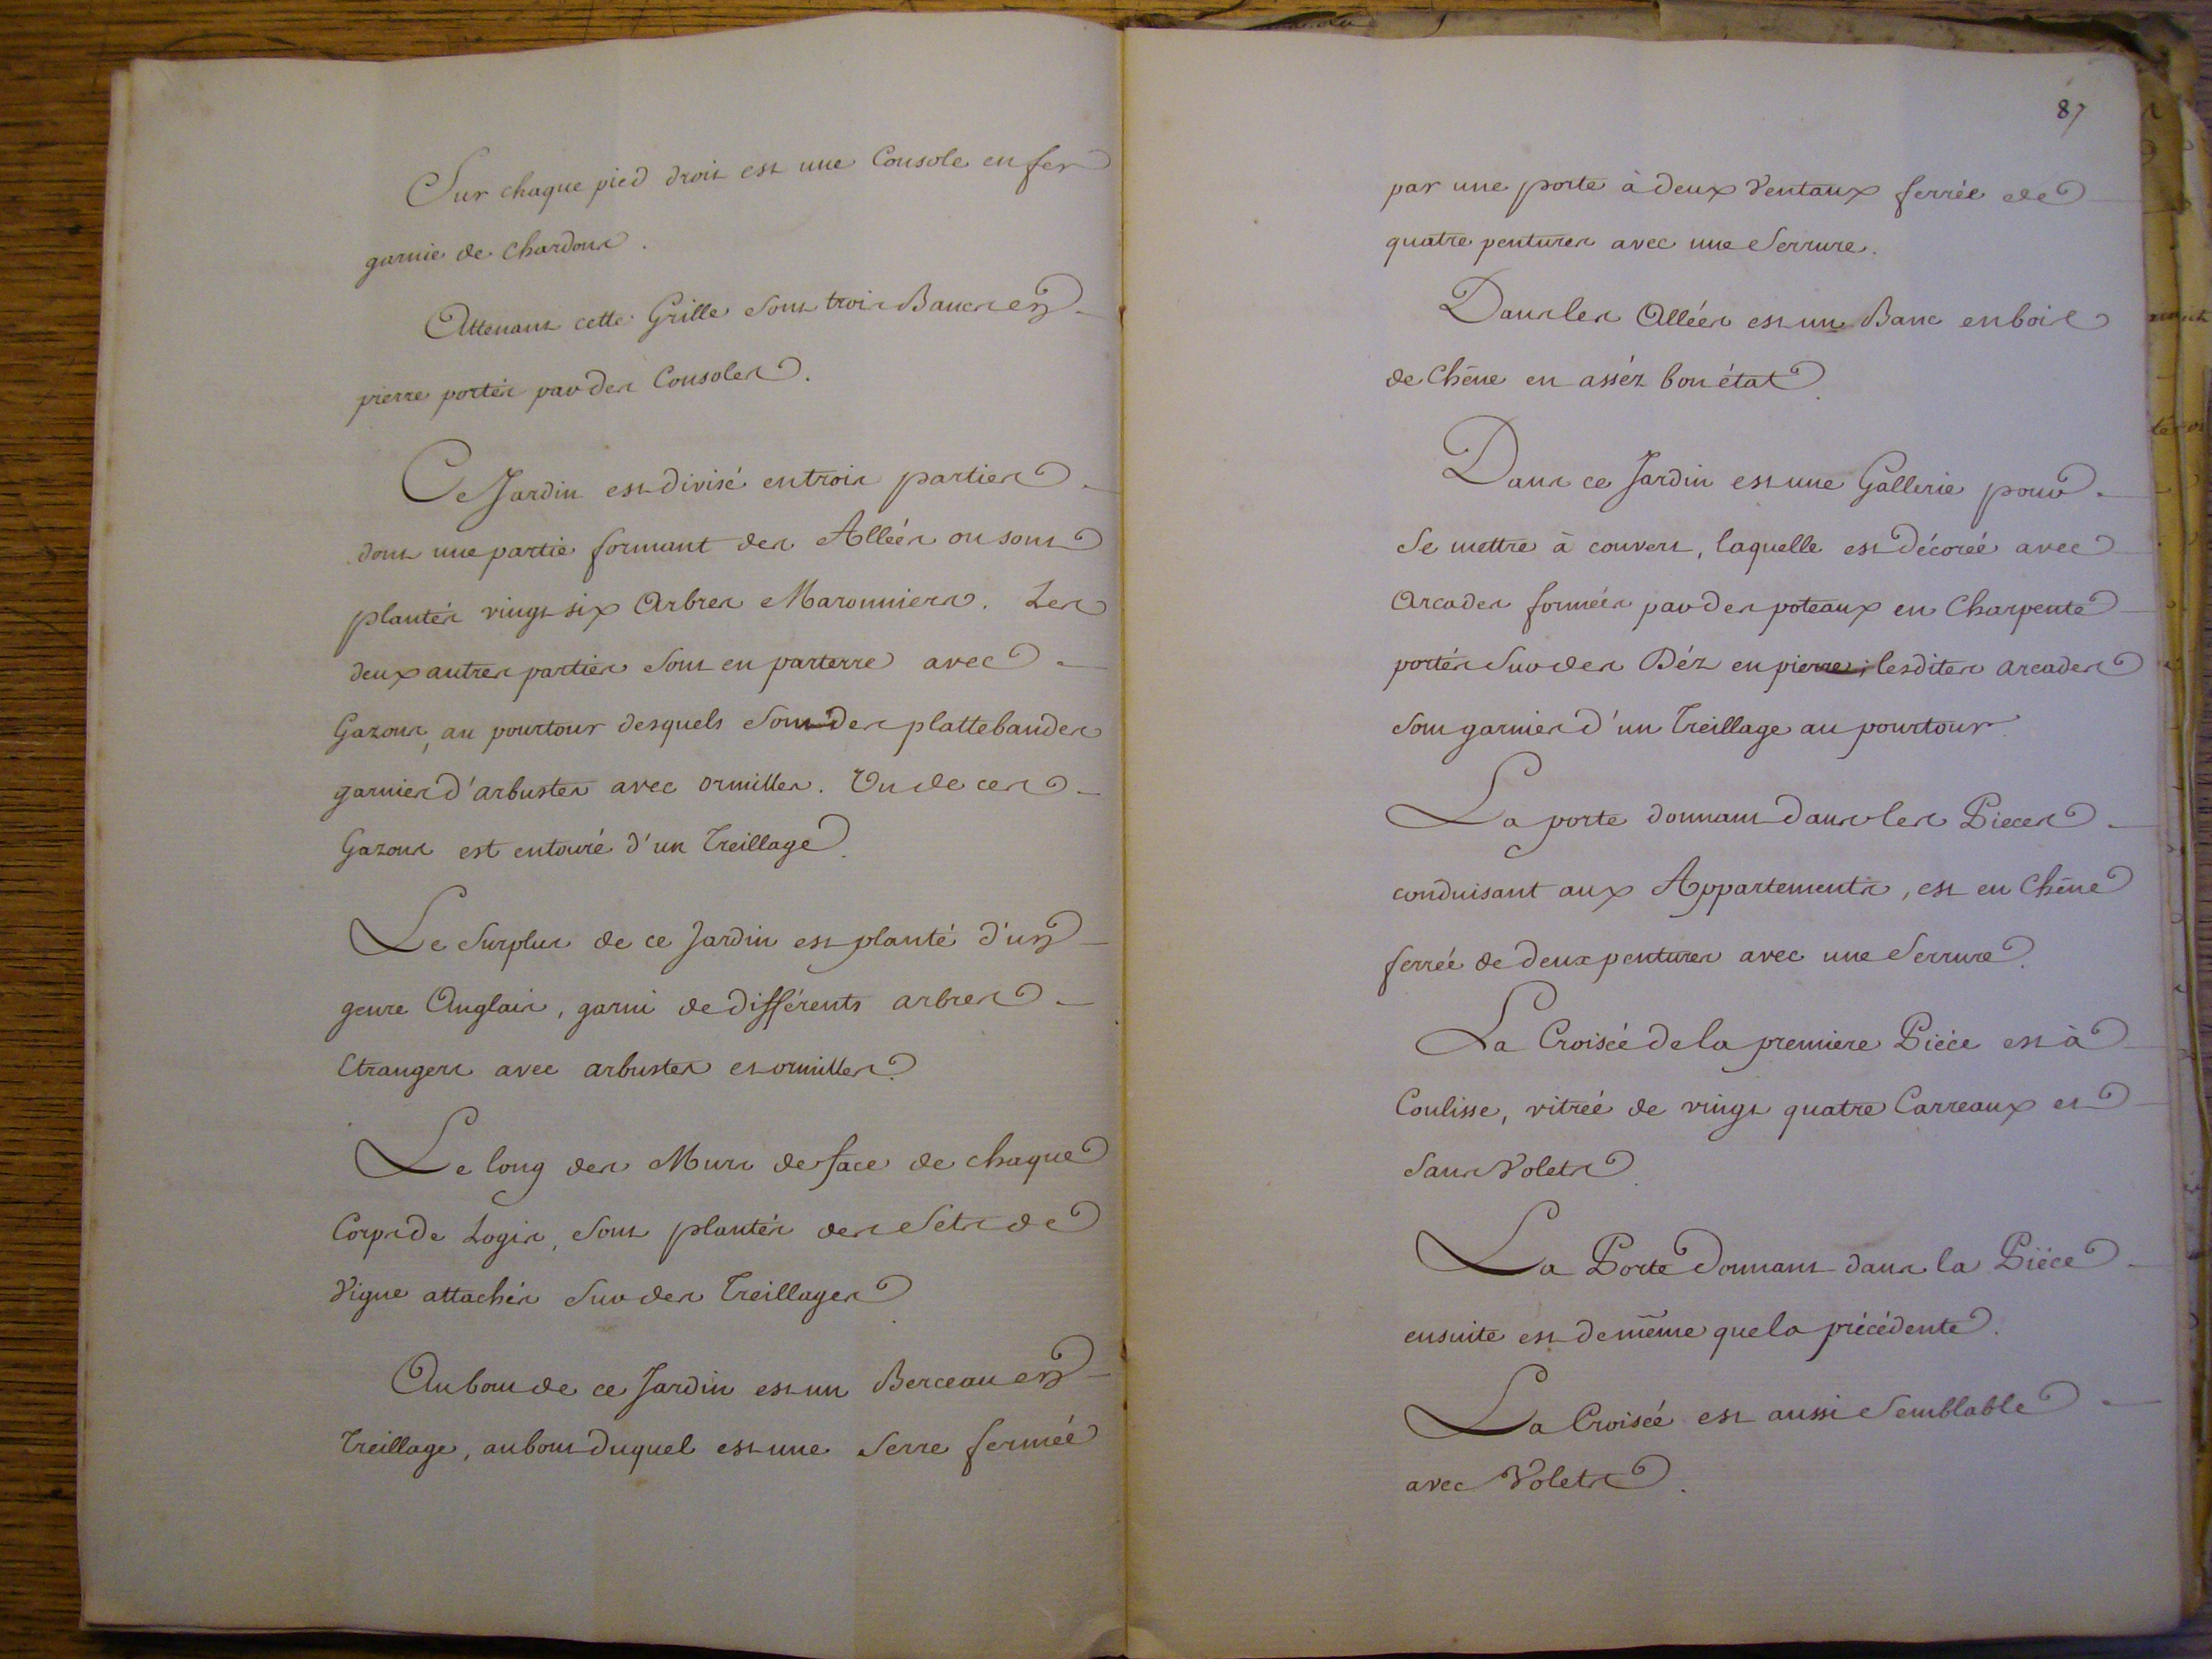 Sur chaque pied droit est une Console en fer
garnie de Chardons.
Attenant cette Grille sont trois Bancs en
pierre portés par des Consoles.
Ce Jardin est divisé en trois parties
dont une partie formant des Allées ou sont
plantés vingt six Arbres Maronniers. Les
deux autres parties sont en parterre avec
Gazons, au pourtour desquels sont des plattebandes
garnies d'arbustes avec ormilles. Un de ces
Gazons est entouré d'un Treillage.
Le Surplus de ce Jardin est planté d'un
genre Anglais, garni de différents arbres
Etrangers avec arbustes et ormilles.
Le long des Murs de face de chaque
Corps de Logis, sont plantés des Sets de
Vigne attachés sur des Treillages.
Au bout de ce Jardin est un Berceau en
Treillage, au bout duquel est une Serre fermée
87
par une porte à deux Ventaux ferrée de
quatre pentures avec une Serrure.
Dans les Allées est un Banc en bois
de Chêne en asséz bon état.
Dans ce Jardin est une Gallerie pour
se mettre à couvert, laquelle est décorée avec
Arcades formées par des poteaux en Charpente
portés sur des Déz en pierre; lesdites arcades
sont garnies d'un Treillage au pourtour.
La porte donnant dans les Pieces
conduisant aux Appartements, est en Chêne
ferrée de deux pentures avec une Serrure.
La Croisée de la premiere Piéce est à
Coulisse, vitrée de vingt quatre Carreaux et
sans Volets.
La Porte donnant dans la Piéce
ensuite est de même que la précédente.
La Croisée est aussi Semblable
avec Volets.